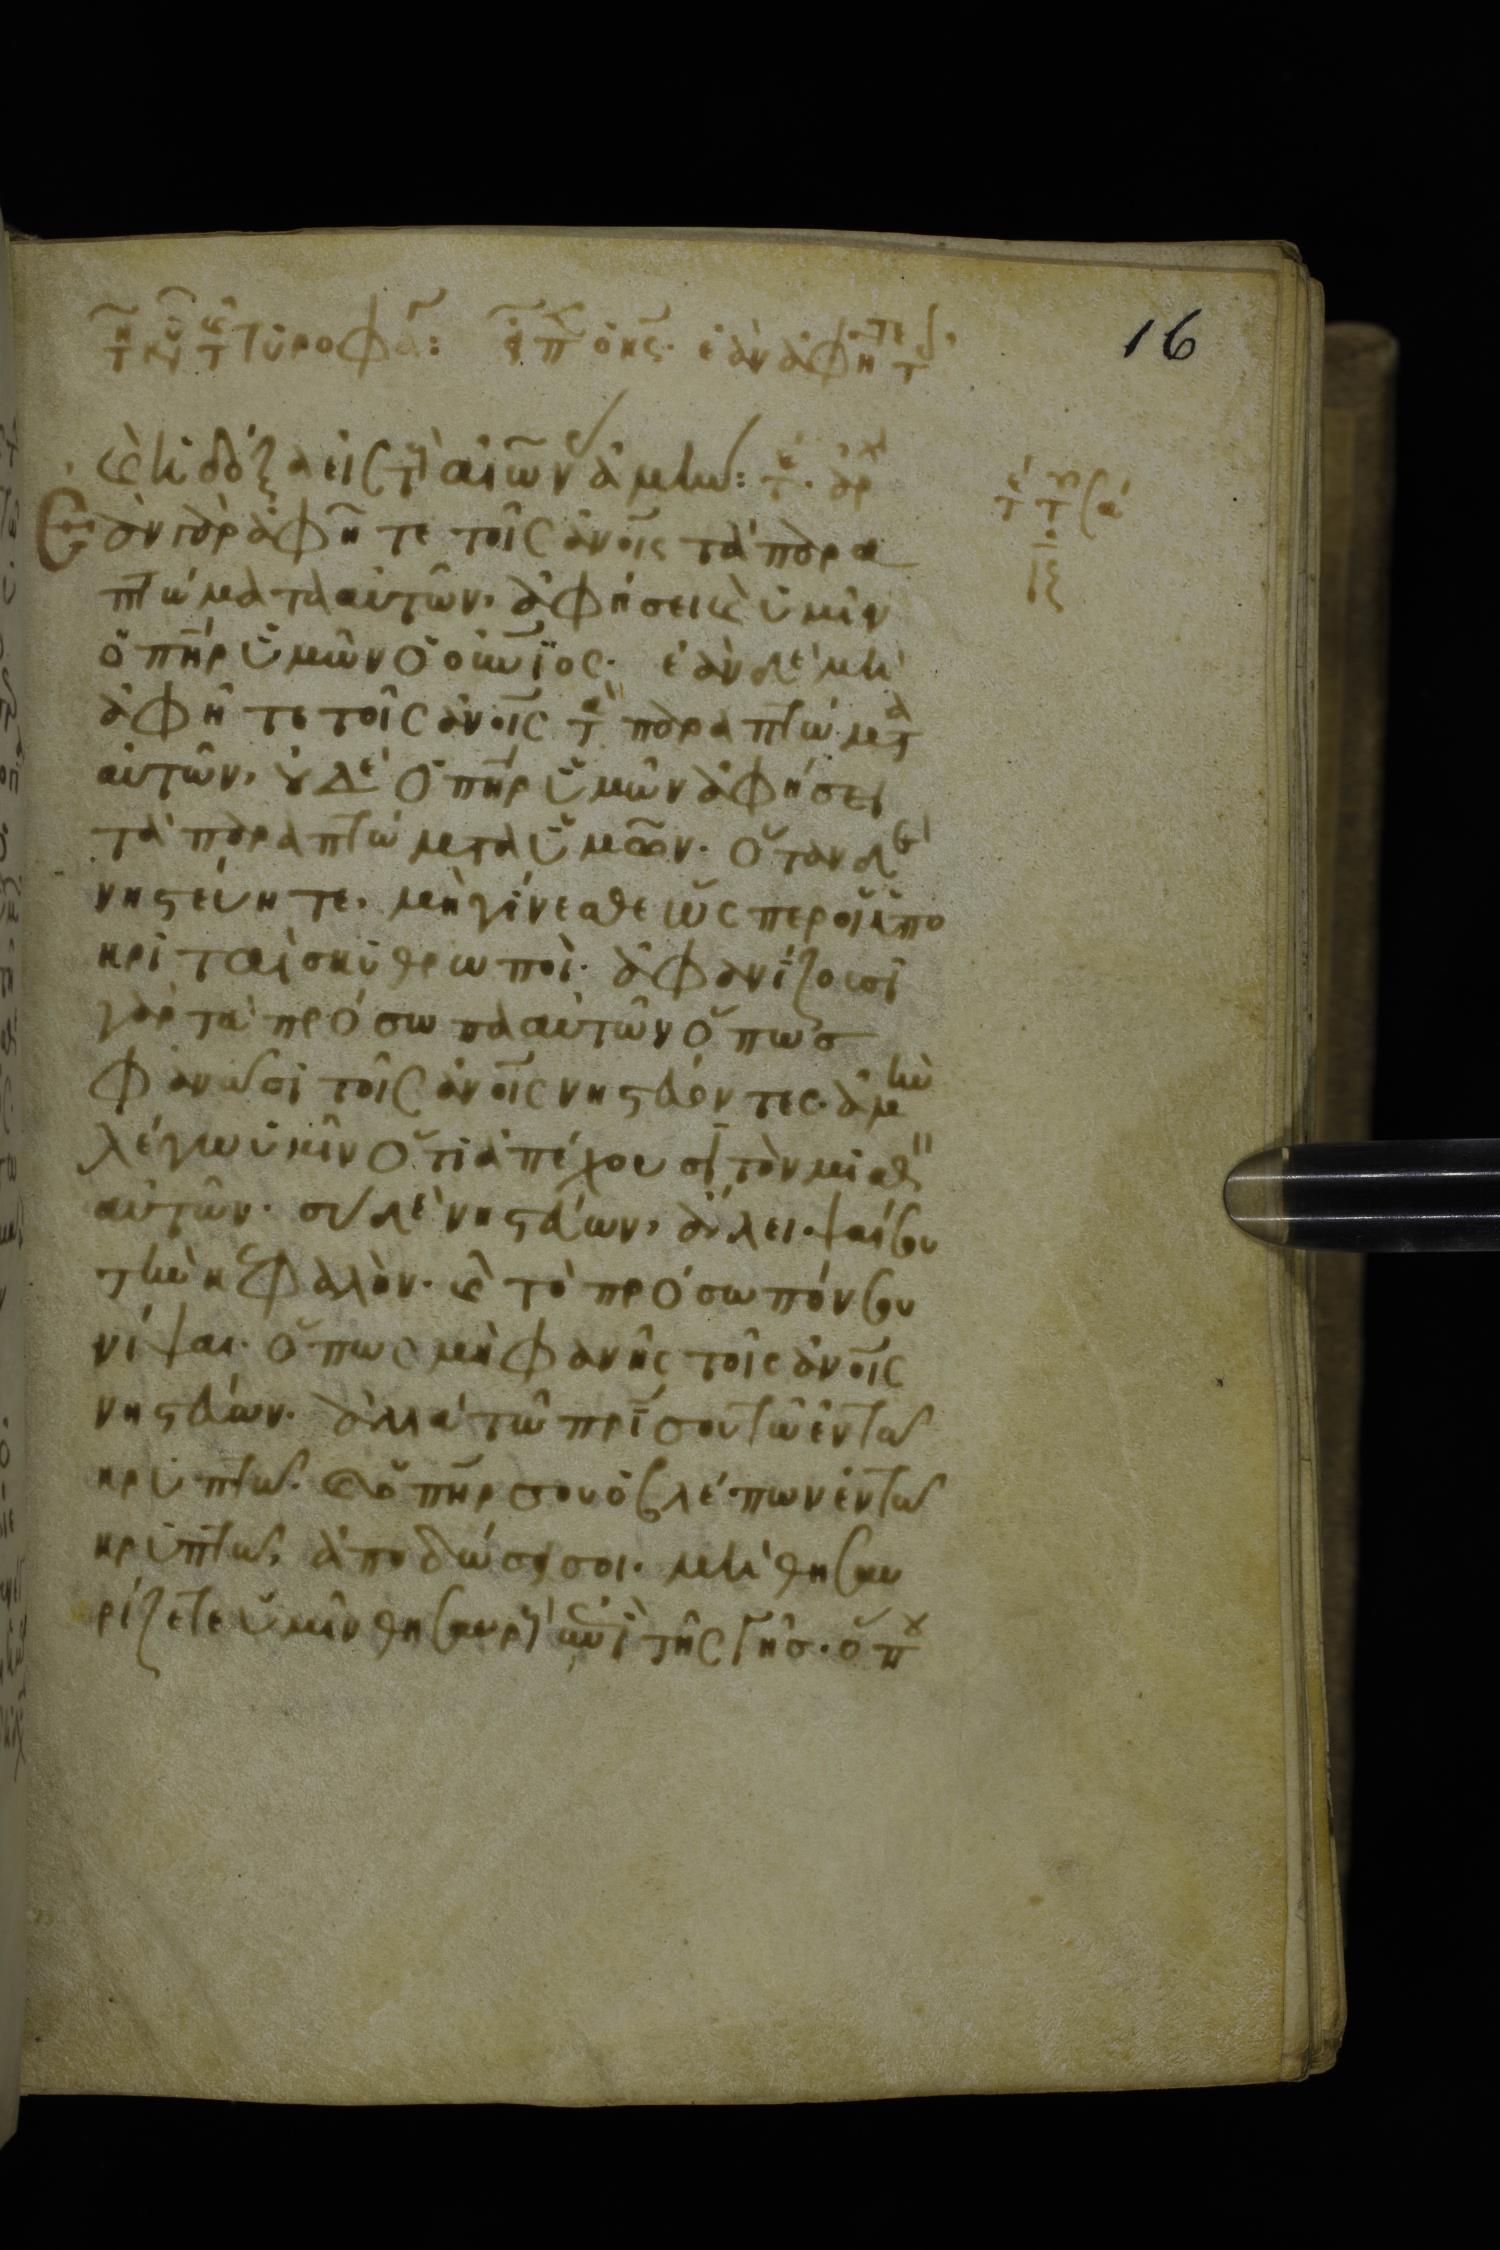 16
καὶ ἡ δόξα εἰς τοὺς αἰῶνας ἀμήν:
Ἐὰν γὰρ ἀφῆτε τοῖς ἀνοις τὰ παρα
πτώματα αὐτῶν, ἀφήσει καὶ ὑμῖν
ὁ πηρ ὑμῶν ὁ οὐνιος· ἐὰν δὲ μὴ
ἀφῆτε τοῖς ἀνοις τὰ παραπτώματα
αὐτῶν, οὐδὲ ὁ πηρ ὑμῶν ἀφήσει
τὰ παραπτώματα ὑμῶν· ὅταν δὲ
νηστεύητε, μὴ γίνεσθε ὥσπερ οἱ ὑπο
κριταὶ σκυθρωποὶ· ἀφανίζουσι
γὰρ τὰ πρόσωπα αὐτῶν ὅπως
φανῶσι τοῖς ἀνοις νηστεύοντες· ἀμὴν
λέγω ὑμῖν ὅτι ἀπέχουσι τὸν μισθὸν
αὐτῶν· σὺ δὲ νηστεύων, ἄλειψαί σου
τὴν κεφαλὴν· καὶ τὸ πρόσωπόν σου
νίψαι· ὅπως μὴ φανῇς τοῖς ἀνοις
νηστεύων· ἀλλὰ τῶ πρι σου τῶ ἐν τῶ
κρυπτῶ· καὶ ὁ πηρ σου ὁ βλέπων ἐν τῶ
κρυπτῶ, ἀποδώσει σοι· μὴ θησαυ
ρίζετε ὑμῖν θησαυροὺς ἐπὶ τῆς γῆς· ὅπου